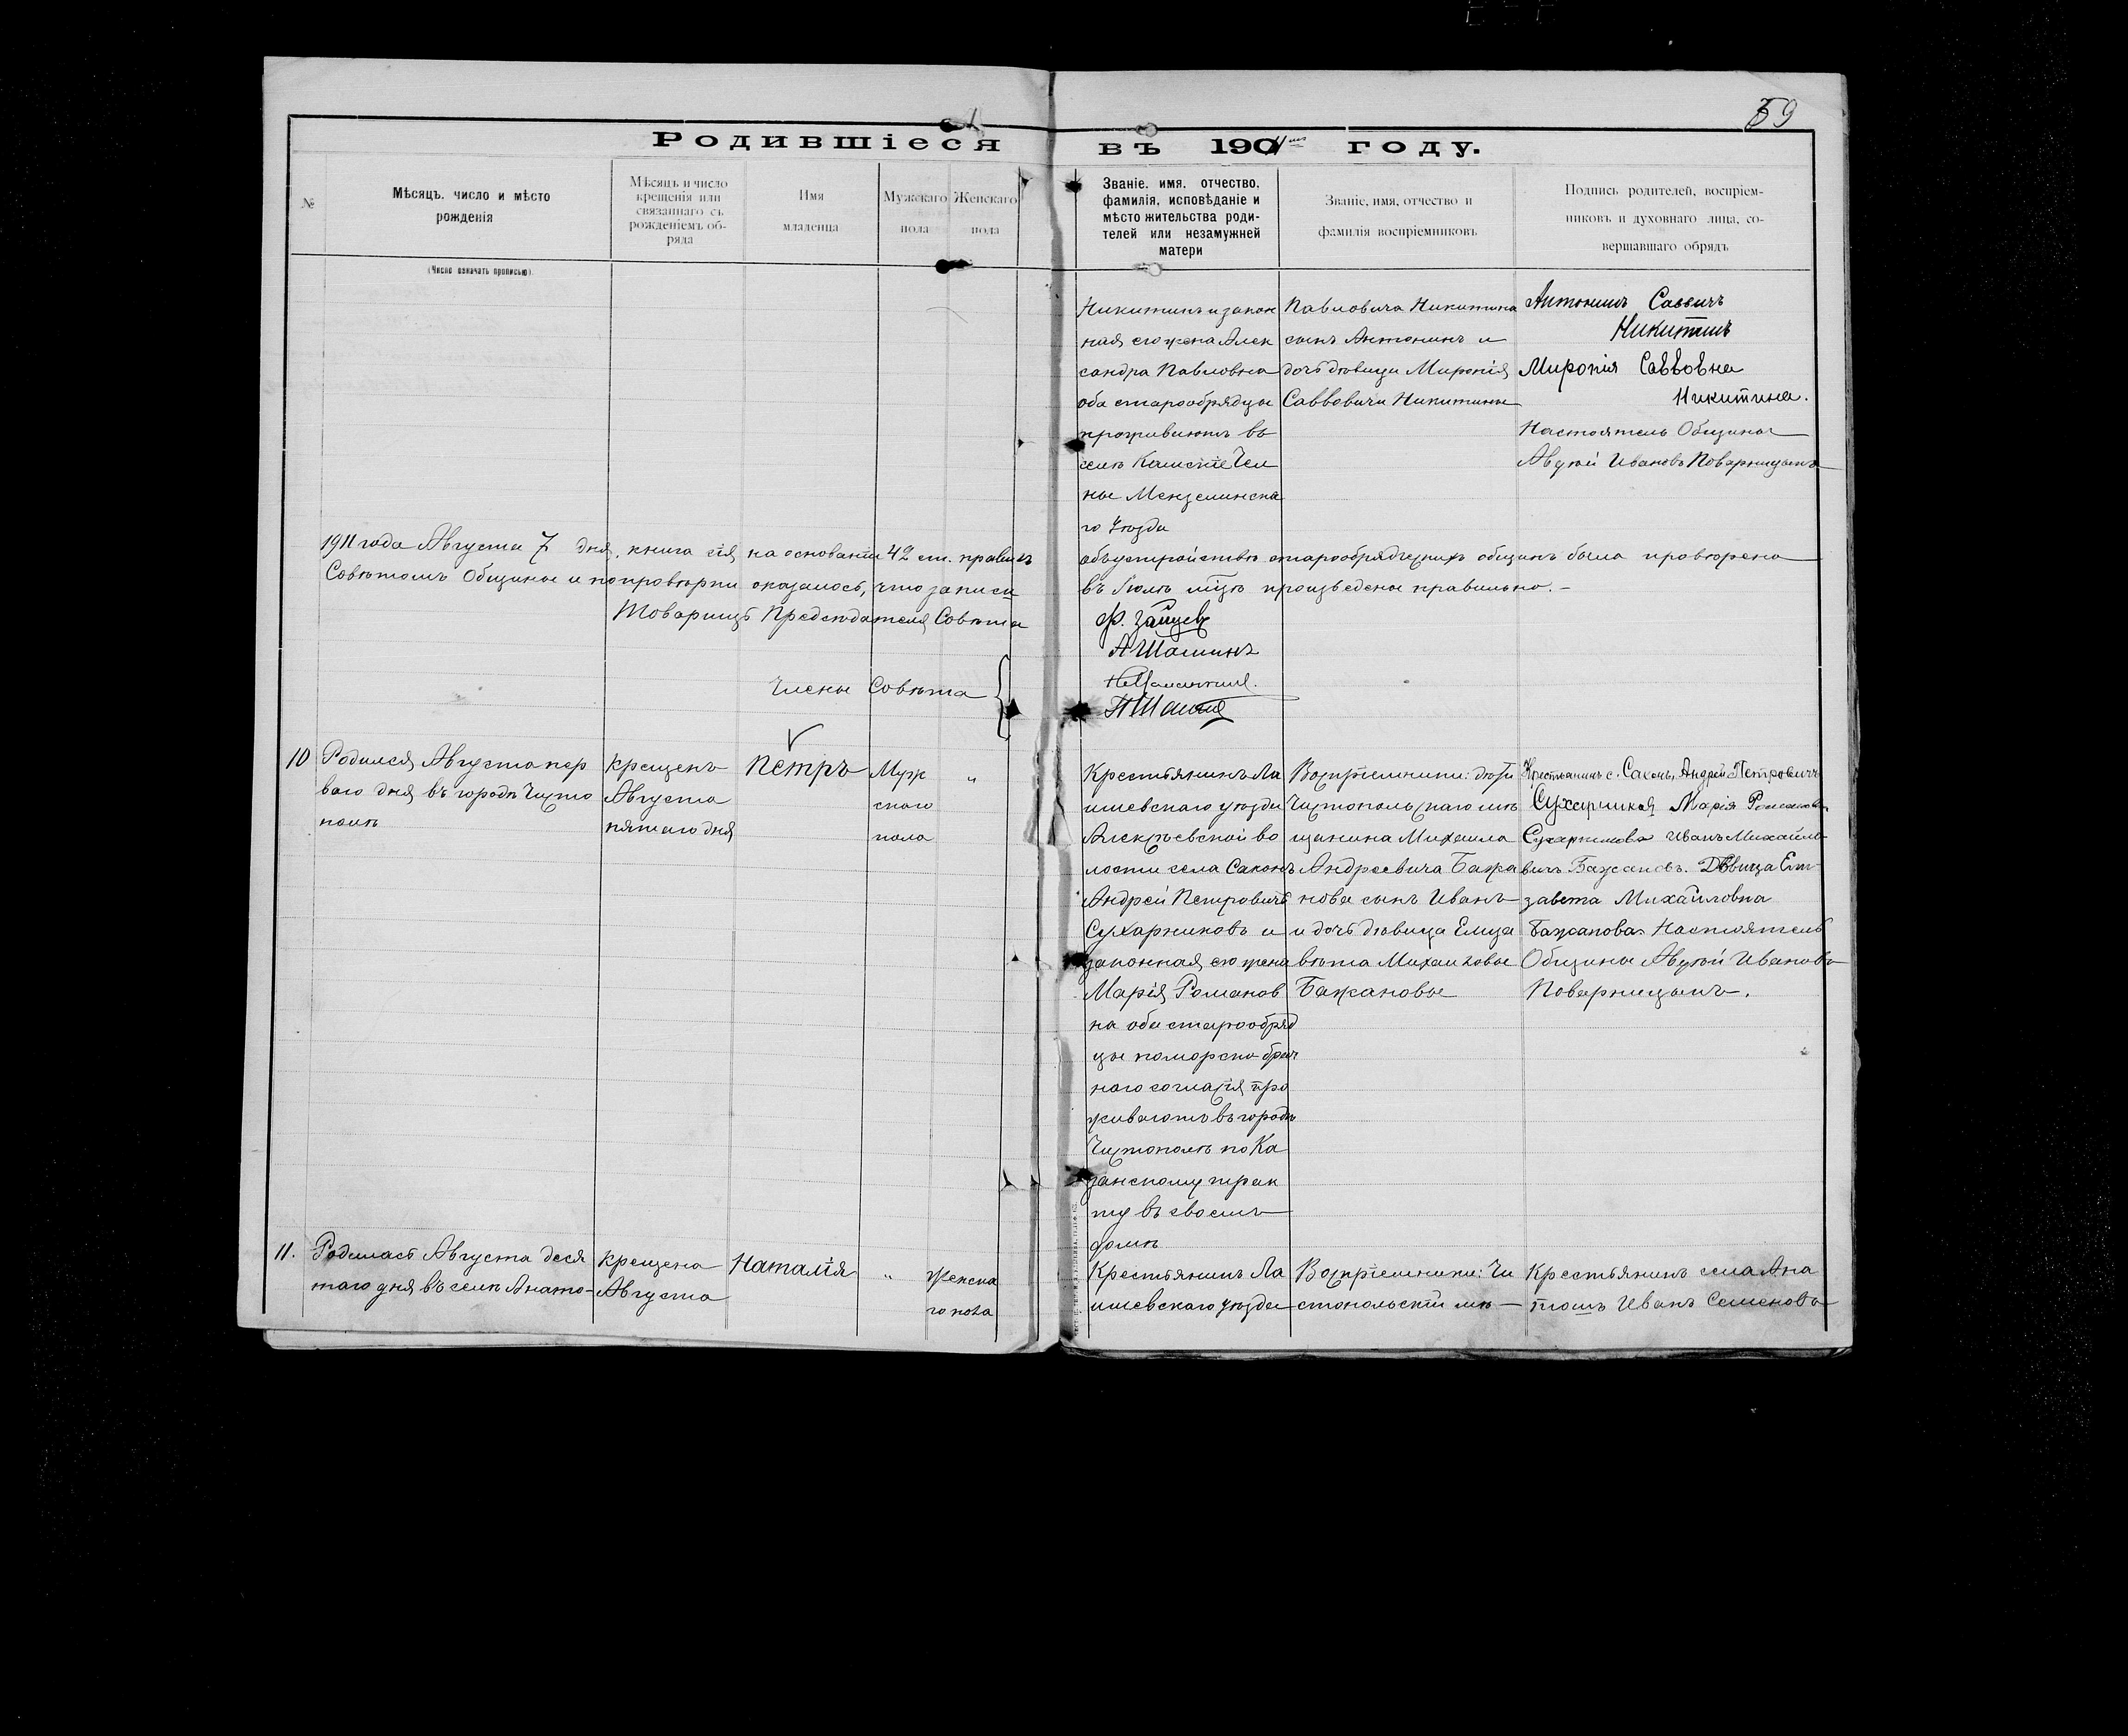 59
Родившіеся въ 1911 году.
№
Мѣсяцъ, число и мѣсто
рожденія
(Число означать прописью).
Мѣсяцъ и число
крещенія или
связаннаго съ
рожденіемъ об-
ряда
Имя
младенца
Мужскаго
пола
Женскаго
пола
Званіе, имя, отчество,
фамилія, исповѣданіе и
мѣсто жительства роди-
телей или незамужней
матери
Званіе, имя, отчество и
фамилія воспріемниковъ
Подпись родителей, воспріем-
никовъ и духовнаго лица, со-
вершавшаго обрядъ
Никитинъ и закон
ная его жена Алек
сандра Павловна
оба старообрядцы
проживаютъ въ
селѣ Камскіе Чел
ны Мензелинска
го уѣзда
Павловича Никитина
сынъ Антонинъ и
дочь дѣвица Миропія
Саввовичи Никитины
Антонинъ Саввичъ
Никитинъ
Миропія Саввовна
Никитина.
Настоятель Общины
Авдѣй Ивановъ Поварницынъ
1911 года Августа 7 дня, книга сія на основаніи 42 ст. правилъ объ устройствѣ старообрядческихъ общинъ была провѣрена
Совѣтомъ Общины и по провѣрки оказалось, что записи въ Іюлѣ мцѣ произведены правильно.-
Товарищъ Предсѣдателя Совѣта Ф. Зайцевъ
А Шашинъ
Члены Совѣта
10
Родился Августа пер
ваго дня въ городѣ Чисто
полѣ
крещенъ
Августа
пятаго дня
Петръ
Муж
скаго
пола
"
Крестьянинъ Ла
ишевскаго уѣзда
Алексѣевской во
лости села Саконъ
Андрей Петровичъ
Сухарниковъ и
законная его жена
Марія Романов
на оба старообряд
цы поморско брач
наго согласія про
живаютъ въ городѣ
Чистополѣ по Ка
занскому трак
ту въ своемъ
домѣ
Воспріемники: дѣти
Чистопольскаго мѣ
щанина Михаила
Андреевича Бажа
нова сынъ Иванъ
и дочь дѣвица Елиза
вѣта Михаиловы
Бажановы
Крестьянинъ с. Саконъ, Андрей Петровичъ
Марія Романовн
Сухарникова Иванъ Михайло
вичъ Бажановъ. Дѣвица Ели
завета Михайловна
Бажанова. Настоятель
Общины Авдѣй Ивановъ
Поварницынъ.
11.
Родилась Августа деся
таго дня въ селѣ Анато-
крещена
Августа
Наталія
"
Женска
го пола
Крестьянинъ Ла
ишевскаго уѣзда
Воспріемники: Чи
стопольскій мѣ
Крестьянинъ села Ана
тошъ Иванъ Семеновъ